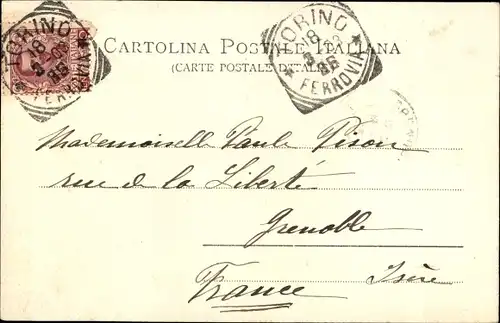 TORINO
18
FERROVIA
TORINO
18
FERROVIA
CARTOLINA POSTALE ITALIANA
(CARTE POSTALE D'ITALIE)
Mademoiselle Paule Pison
rue de la Liberté
Grenoble
Isère
France